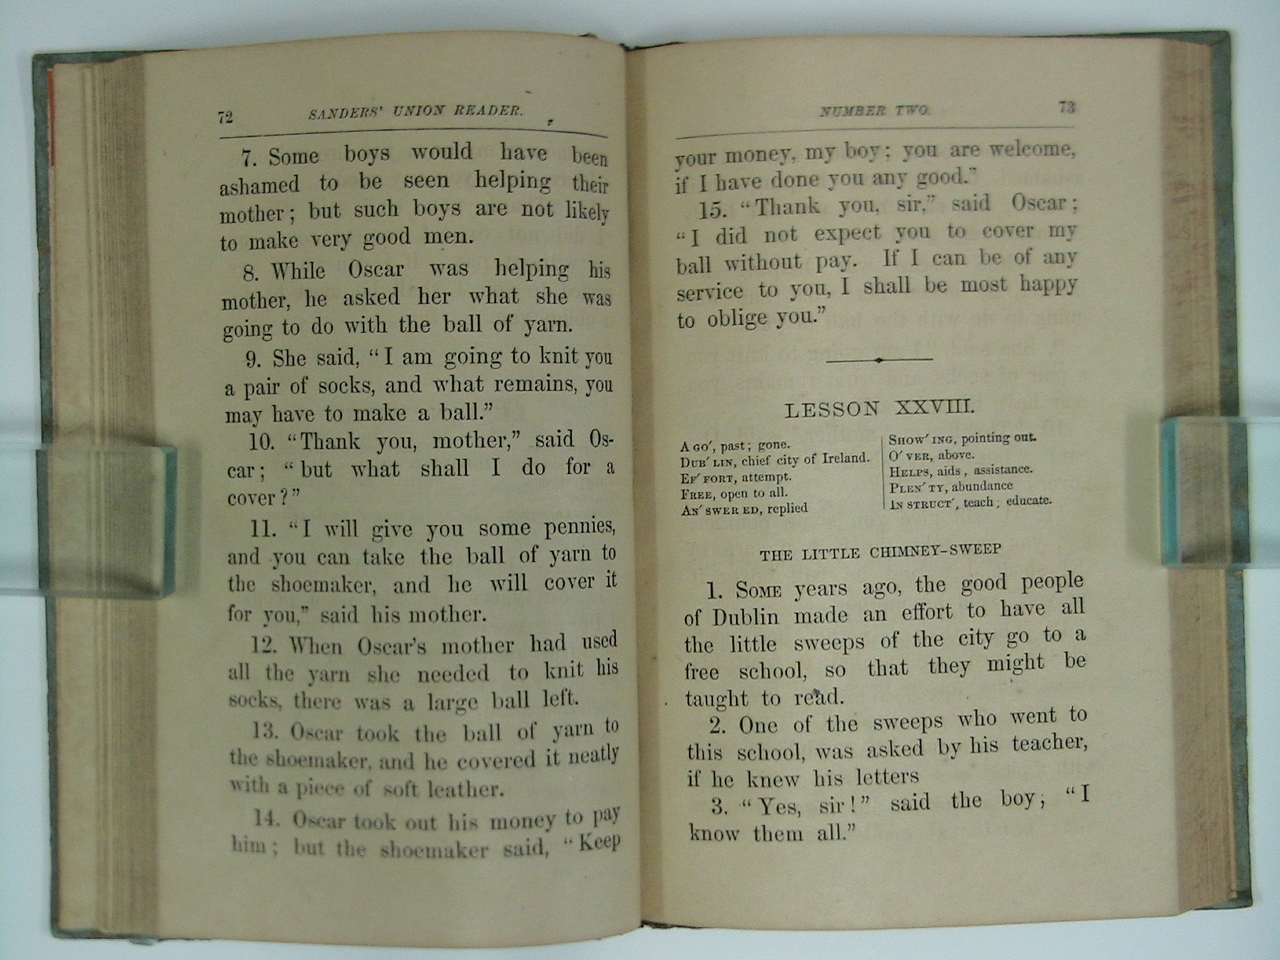 72 SANDERS' UNION READER.
7. Some boys would have been
ashamed to be seen helping their
mother; but such boys are not likely
to make very good men.
8. While Oscar was helping his
mother, he asked her what she was
going to do with the ball of yarn.
9. She said, “I am going to knit you
a pair of socks, and what remains, you
may have to make a ball.”
10. “Thank you, mother,” said Os-
car; “but what shall I do for a
cover?”
11. “I will give you some pennies,
and you can take the ball of yarn to
the shoemaker, and he will cover it
for you,” said his mother.
12. When Oscar's mother had used
all the yarn she needed to knit his
socks, there was a large ball left.
13. Oscar took the ball of yarn to
the shoemaker, and he covered it neatly
with a piece of soft leather.
14. Oscar took out his money to pay
him; but the shoemaker said, “Keep
NUMBER TWO. 73
your money, my boy; you are welcome,
if I have done you any good.”
15. “Thank you, sir,” said Oscar;
“I did not expect you to cover my
ball without pay. If I can be of any
service to you, I shall be most happy
to oblige you.”
LESSON XXVIII.
A GO′, past; gone.
DUB′ LIN, chief city of Ireland.
EF′ FORT, attempt.
FREE, open to all.
AN′ SWER ED, replied
SHOW′ ING, pointing out.
O′ VER, above.
HELPS, aids, assistance.
PLEN′ TY, abundance
IN STRUCT′, teach; educate.
THE LITTLE CHIMNEY-SWEEP
1. SOME years ago, the good people
of Dublin made an effort to have all
the little sweeps of the city go to a
free school, so that they might be
taught to read.
2. One of the sweeps who went to
this school, was asked by his teacher,
if he knew his letters
3. “Yes, sir!” said the boy; “I
know them all.”